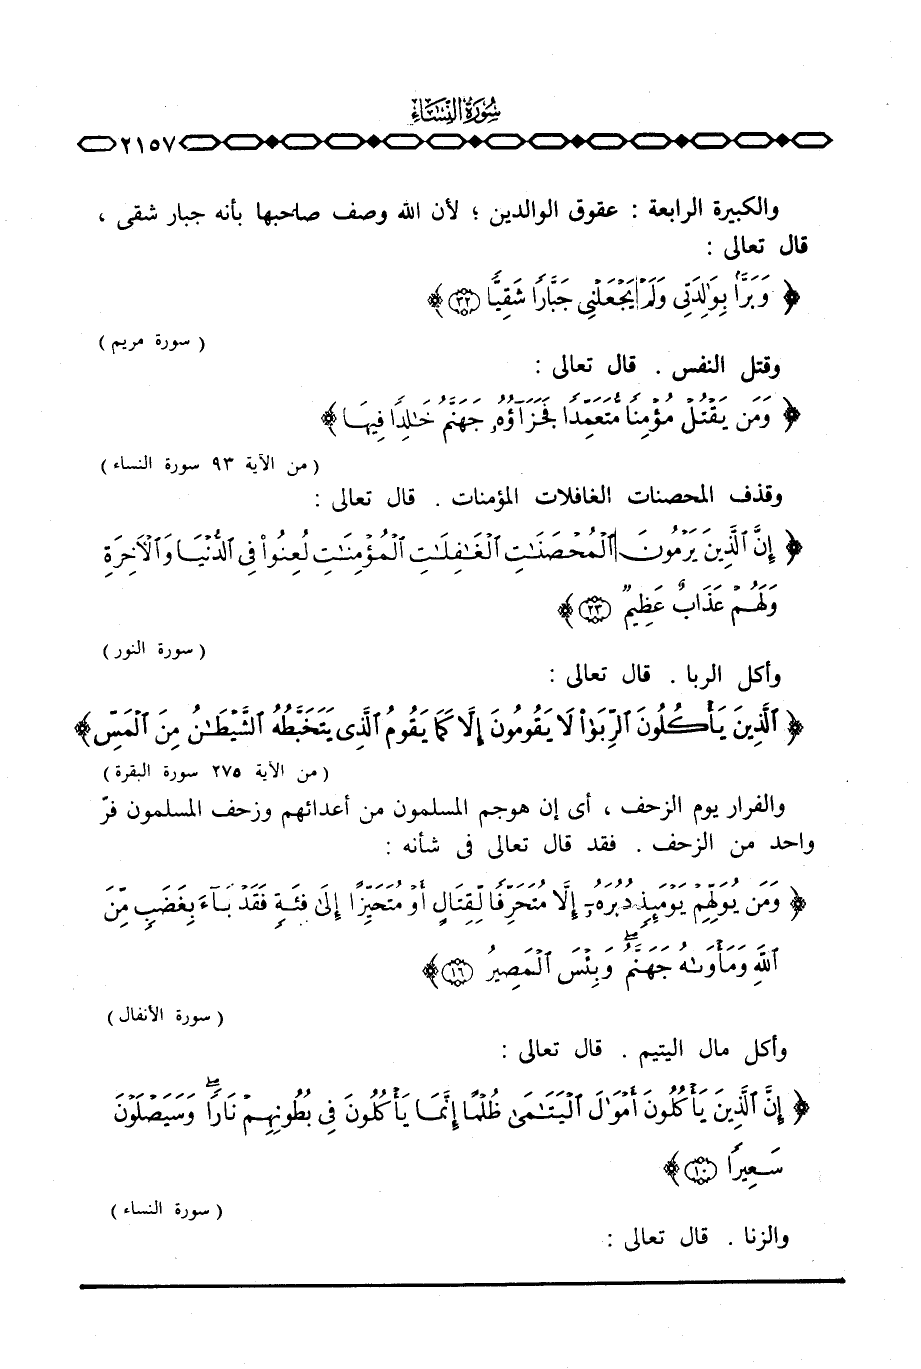 سُورَةُ النِّسَاءِ
٢١٥٧
والكبيرة الرابعة : عقوق الوالدين ؛ لأن الله وصف صاحبها بأنه جبار شقى ،
قال تعالى :
﴿ وَبَرًّۢا بِوَٰلِدَتِى وَلَمْ يَجْعَلْنِى جَبَّارًا شَقِيًّا ۝٣٢ ﴾
( سورة مريم )
وقتل النفس . قال تعالى :
﴿ وَمَن يَقْتُلْ مُؤْمِنًا مُّتَعَمِّدًا فَجَزَآؤُهُۥ جَهَنَّمُ خَٰلِدًا فِيهَا ﴾
( من الآية ٩٣ سورة النساء )
وقذف المحصنات الغافلات المؤمنات . قال تعالى :
﴿ إِنَّ ٱلَّذِينَ يَرْمُونَ ٱلْمُحْصَنَٰتِ ٱلْغَٰفِلَٰتِ ٱلْمُؤْمِنَٰتِ لُعِنُوا۟ فِى ٱلدُّنْيَا وَٱلْأَخِرَةِ
وَلَهُمْ عَذَابٌ عَظِيمٌ ۝٢٣ ﴾
( سورة النور )
وأكل الربا . قال تعالى :
﴿ ٱلَّذِينَ يَأْكُلُونَ ٱلرِّبَوٰا۟ لَا يَقُومُونَ إِلَّا كَمَا يَقُومُ ٱلَّذِى يَتَخَبَّطُهُ ٱلشَّيْطَٰنُ مِنَ ٱلْمَسِّ ﴾
( من الآية ٢٧٥ سورة البقرة )
والفرار يوم الزحف ، أى إن هوجم المسلمون من أعدائهم وزحف المسلمون فرّ
واحد من الزحف . فقد قال تعالى فى شأنه :
﴿ وَمَن يُوَلِّهِمْ يَوْمَئِذٍ دُبُرَهُۥٓ إِلَّا مُتَحَرِّفًا لِّقِتَالٍ أَوْ مُتَحَيِّزًا إِلَىٰ فِئَةٍ فَقَدْ بَآءَ بِغَضَبٍ مِّنَ
ٱللَّهِ وَمَأْوَىٰهُ جَهَنَّمُ ۖ وَبِئْسَ ٱلْمَصِيرُ ۝١٦ ﴾
( سورة الأنفال )
وأكل مال اليتيم . قال تعالى :
﴿ إِنَّ ٱلَّذِينَ يَأْكُلُونَ أَمْوَٰلَ ٱلْيَتَٰمَىٰ ظُلْمًا إِنَّمَا يَأْكُلُونَ فِى بُطُونِهِمْ نَارًا ۖ وَسَيَصْلَوْنَ
سَعِيرًا ۝١٠ ﴾
( سورة النساء )
والزنا . قال تعالى :